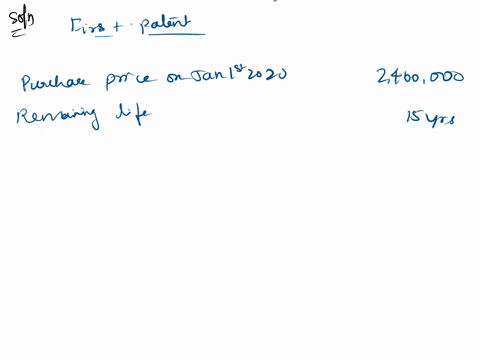 Soln
First patent
Purchase price on Jan 1st 2020 2,400,000
Remaining life 15 yrs